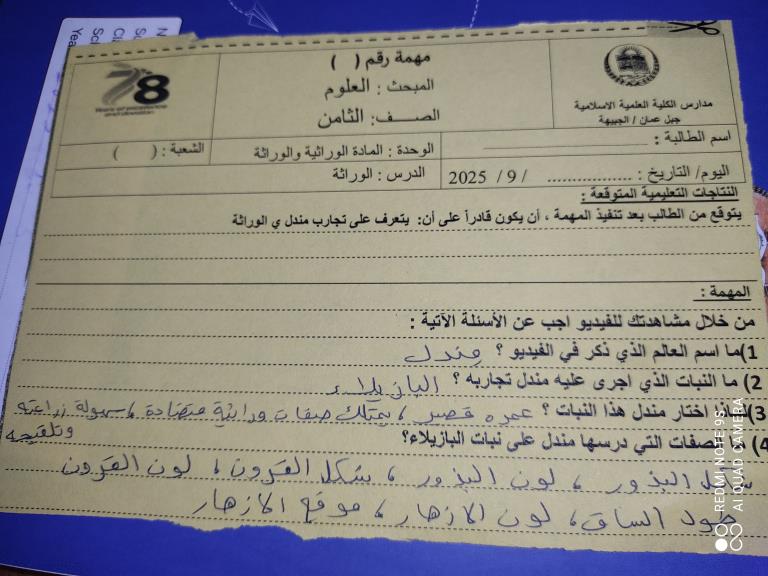 مهمة رقم ( )
المبحث : العلوم
الصف: الثامن
78
Years of excellence
and devotion
مدارس الكلية العلمية الاسلامية
جبل عمان / الجبيهة
اسم الطالبة :
الوحدة : المادة الوراثية والوراثة
الشعبة : ( )
اليوم/ التاريخ : ................ / 9/ 2025
الدرس : الوراثة
النتاجات التعليمية المتوقعة :
يتوقع من الطالب بعد تنفيذ المهمة ، أن يكون قادراً على أن: يتعرف على تجارب مندل ي الوراثة
المهمة :
من خلال مشاهدتك للفيديو اجب عن الأسئلة الآتية :
1)ما اسم العالم الذي ذكر في الفيديو ؟ مندل
2) ما النبات الذي اجرى عليه مندل تجاربه ؟ البازيلاء
3)لماذا اختار مندل هذا النبات ؟ عمره قصير ، يمتلك صفات وراثية متضادة ، سهولة زراعته
وتلقيحه
4) ما الصفات التي درسها مندل على نبات البازيلاء؟
شكل البذور ، لون البذور ، شكل القرون ، لون القرون
طول الساق ، لون الازهار ، موقع الازهار
REDMI NOTE 9S
AI QUAD CAMERA